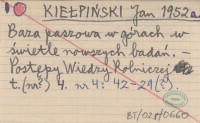 KIEŁPIŃSKI Jan 1952a
Baza paszowa w górach w
świetle nowszych badań. –
Postępy Wiedzy Rolniczej
t. (nr?) 4. m 4: 42-29(?).
BT/02P/0660